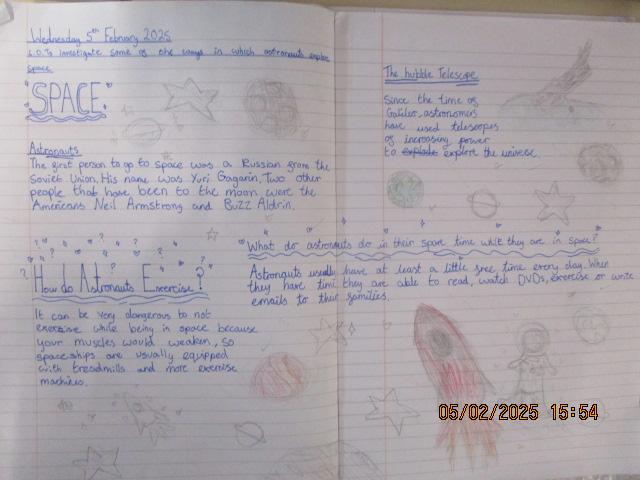 Wednesday 5th February 2025
L.O. To investigate some of the ways in which astronauts explore
space.
"SPACE"
Astronauts
The first person to go to space was a Russian from the
Soviet Union. His name was Yuri Gagarin. Two other
people that have been to the moon were the
Americans Neil Armstrong and Buzz Aldrin.
How do Astronauts Exercise?
It can be very dangerous to not
exercise while being in space because
your muscles would weaken, so
spaceships are usually equipped
with treadmills and more exercise
machines.
The hubble Telescope
Since the time of
Galileo, astronomers
have used telescopes
of increasing power
to explore the universe.
What do astronauts do in their spare time while they are in space?
Astronauts usually have at least a little free time every day. When
they have time they are able to read, watch DVDs, exercise or write
emails to their families.
05/02/2025 15:54